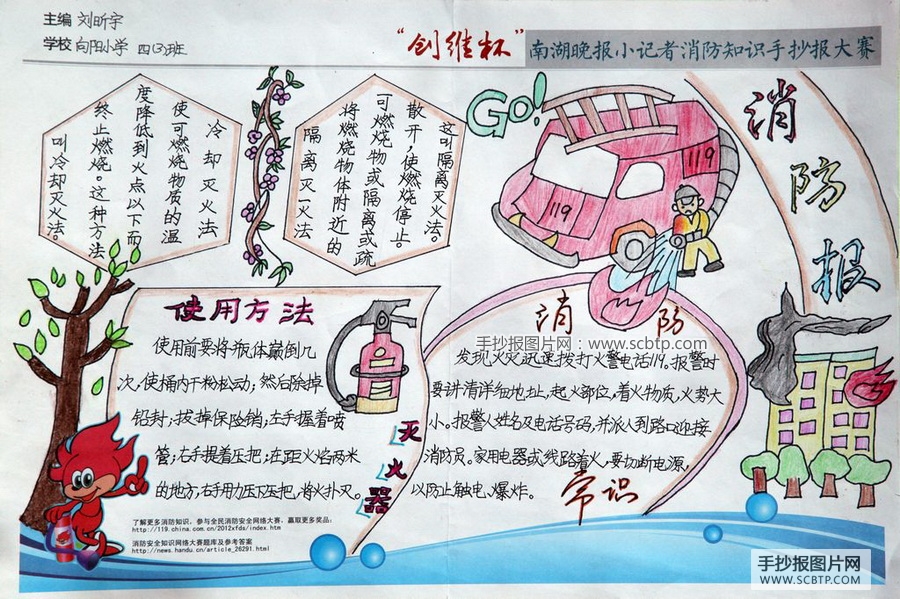 主编 刘昕宇
学校 向阳小学 四(3)班
“创维杯”南湖晚报小记者消防知识手抄报大赛
冷却灭火法
使可燃烧物质的温
度降低到火点以下而
终止燃烧。这种方法
叫冷却灭火法。
隔离灭火法
将燃烧物体附近的
可燃烧物或隔离或疏
散开,使燃烧停止。
这叫隔离灭火法。
GO!
119
119
消防报
使用方法
使用前要将瓶体颠倒几
次,使桶内干粉松动;然后除掉
铅封;拔掉保险销;左手握着喷
管;右手提着压把;在距火焰两米
的地方,右手用力压下压把,将火扑灭。
灭火器
消防
发现火灾迅速拨打火警电话119。报警时
要讲清详细地址,起火部位,着火物质,火势大
小。报警人姓名及电话号码,并派人到路口迎接
消防员。家用电器或线路着火,要切断电源,
以防止触电、爆炸。
常识
手抄报图片网:www.scbtp.com
了解更多消防知识,参与全民消防安全网络大赛,赢取更多奖品:
http://119.china.com.cn/2012xfds/index.htm
消防安全知识网络大赛题库及参考答案
http://news.handu.cn/article_26291.html
手抄报图片网
WWW.SCBTP.COM